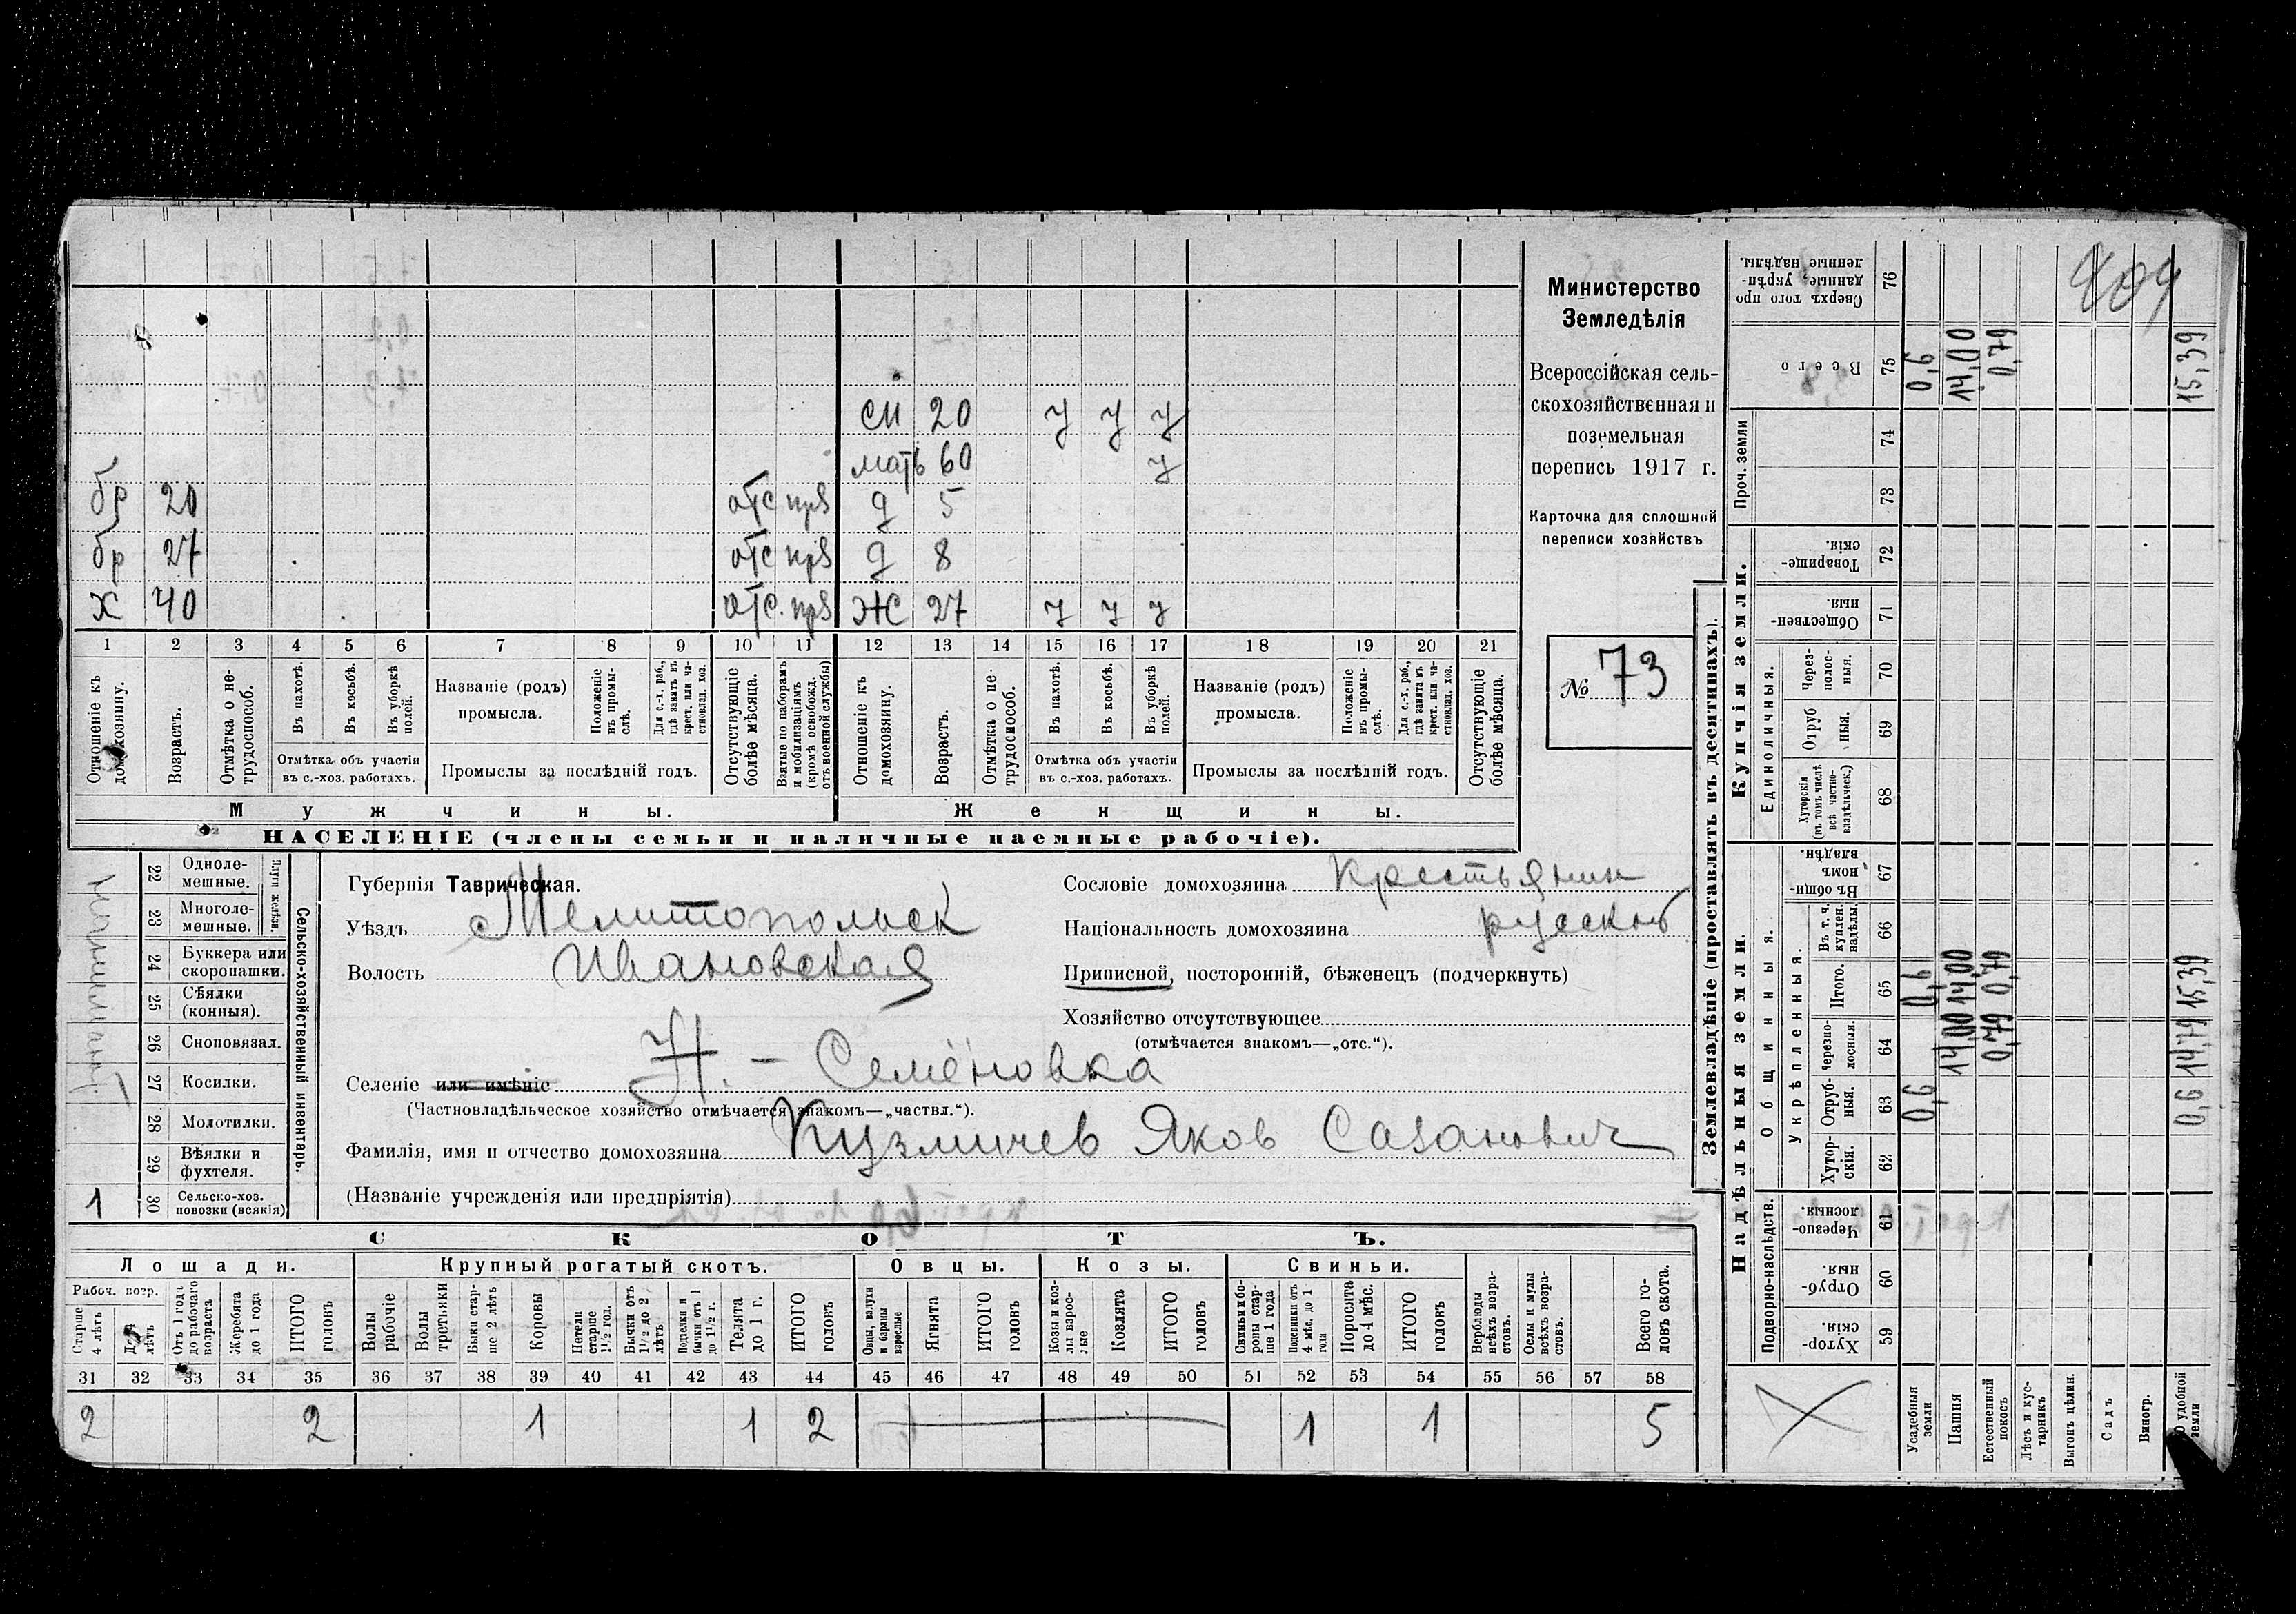 Министерство
Земледѣлія
Всероссійская сель-
скохозяйственная и
поземельная
перепись 1917 г.
Карточка для сплошной
переписи хозяйствъ
№ 73
409
см 20 у у у
мать 60 у
бр 20 отс прз д 5
бр 27 отс прз д 8
х 40 отс. прз ж 27 у у у
1 2 3 4 5 6 7 8 9 10 11 12 13 14 15 16 17 18 19 20 21
Отношеніе къ домохозяину.
Возрастъ.
Отмѣтка о не-трудоспособ.
Въ пахотѣ.
Въ косьбѣ.
Въ уборкѣ полей.
Отмѣтка объ участіи
въ с.-хоз. работахъ.
Названіе (родъ)
промысла.
Положеніе въ промы-слѣ.
Для с.-х. раб., гдѣ занятъ въ крест. или ча-стновлад. хоз.
Промыслы за послѣдній годъ.
Отсутствующіе болѣе мѣсяца.
Взятые по наборамъ и мобилизаціямъ (кромѣ освобожд. отъ военной службы)
Отношеніе къ домохозяину.
Возрастъ.
Отмѣтка о не-трудоспособ.
Въ пахотѣ.
Въ косьбѣ.
Въ уборкѣ полей.
Отмѣтка объ участіи
въ с.-хоз. работахъ.
Названіе (родъ)
промысла.
Положеніе въ промы-слѣ.
Для с.-х. раб., гдѣ занята въ крест. или ча-стновлад. хоз.
Промыслы за послѣдній годъ.
Отсутствующіе болѣе мѣсяца.
Мужчины.
Женщины.
НАСЕЛЕНІЕ (члены семьи и наличные наемные рабочіе).
Сельско-хозяйственный инвентарь.
Плуги желѣзн.
22 Одноле-мешные.
23 Многоле-мешные.
24 Буккера или скоропашки.
25 Сѣялки (конныя).
26 Сноповязал.
27 Косилки.
28 Молотилки.
29 Вѣялки и фухтеля.
1 30 Сельско-хоз. повозки (всякія)
Губернія Таврическая.
Уѣздъ Мелитопольск
Волость Ивановская
Селеніе или имѣніе Н. - Семёновка
(Частновладѣльческое хозяйство отмѣчается знакомъ—„частвл.“).
Фамилія, имя и отчество домохозяина Кузмичев Яков Сазанович
(Названіе учрежденія или предпріятія)
Сословіе домохозяина Крестьянин
Національность домохозяина русской
Приписной, посторонній, бѣженецъ (подчеркнуть)
Хозяйство отсутствующее
(отмѣчается знакомъ—„отс.“).
СКОТЪ.
Лошади. Крупный рогатый скотъ. Овцы. Козы. Свиньи.
Рабоч. возр.
Старше 4 лѣтъ
До 4 лѣтъ
Отъ 1 года до рабочаго возраста
Жеребята до 1 года
ИТОГО головъ
Волы рабочіе
Волы третьяки
Быки стар-ше 2 лѣтъ
Коровы
Нетели старше 1½ год.
Бычки отъ 1½ до 2 лѣтъ
Подтелки и бычки отъ 1 до 1½ г.
Телята до 1 г.
ИТОГО головъ
Овцы, валухи и бараны взрослые
Ягнята
ИТОГО головъ
Козы и коз-лы взрос-лые
Козлята
ИТОГО головъ
Свиньи и бо-ровы стар-ше 1 года
Подсвинки отъ 4 мѣс. до 1 года
Поросята до 4 мѣс.
ИТОГО головъ
Верблюды всѣхъ возра-стовъ.
Ослы и мулы всѣхъ возра-стовъ.
Всего го-ловъ скота.
31 32 33 34 35 36 37 38 39 40 41 42 43 44 45 46 47 48 49 50 51 52 53 54 55 56 57 58
2 2 1 1 2 1 1 5
Землевладѣніе (проставлять въ десятинахъ).
Надѣльныя земли.
Купчія земли.
Проч. земли
Подворно-наслѣдств.
Общинныя.
Укрѣпленныя.
Единоличныя.
Хутор-скія. 59
Отруб-ныя. 60
Черезпо-лосныя. 61
Хутор-скія. 62
Отруб-ныя. 63
Черезпо-лосныя. 64
Итого. 65
Въ т. ч. куплен. надѣлы. 66
Въ общин-номъ владѣн. 67
Хуторскія (въ томъ числѣ всѣ частно-владѣльческ.) 68
Отруб ныя. 69
Через-полос-ныя. 70
Обществен-ныя. 71
Товарище-скія. 72
73
74
Всего 75
Сверхъ того про-данные, укрѣп-ленные надѣлы. 76
Усадебныя земли 0,6 0,6 0,6
Пашня 14,00 14,00 14,00
Естественный покосъ 0,79 0,79 0,79
Лѣсъ и кус-тарникъ
Выгонъ цѣлин.
Садъ
Виногр.
удобной земли 0,6 14,79 15,39 15,39